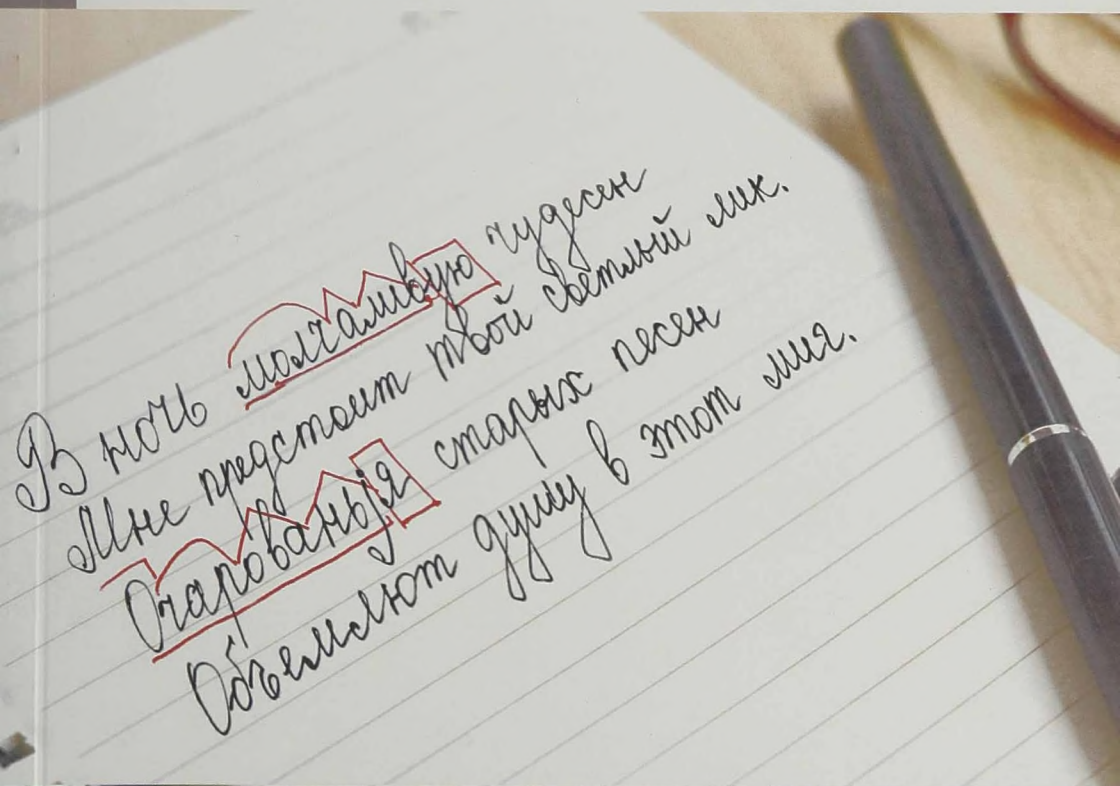 В ночь молчаливую чудесен
Мне предстоит твой светлый лик.
Очарованьjя старых песен
Объемлют душу в этот миг.